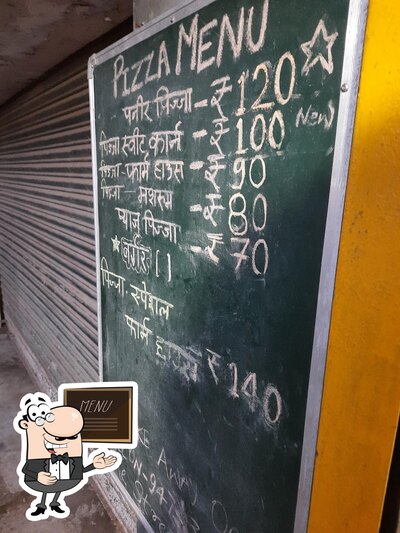 PIZZA MENU
पनीर पिज्जा - ₹ 120
पिज्जा स्वीट कार्न - ₹ 100 New
पिज्जा - फार्म हाउस - ₹ 90
पिज्जा - मशरूम - ₹ 80
प्याज पिज्जा - ₹ 70
बर्गर ( )
पिज्जा - स्पेशल
फार्म हाउस ₹ 140
MENU